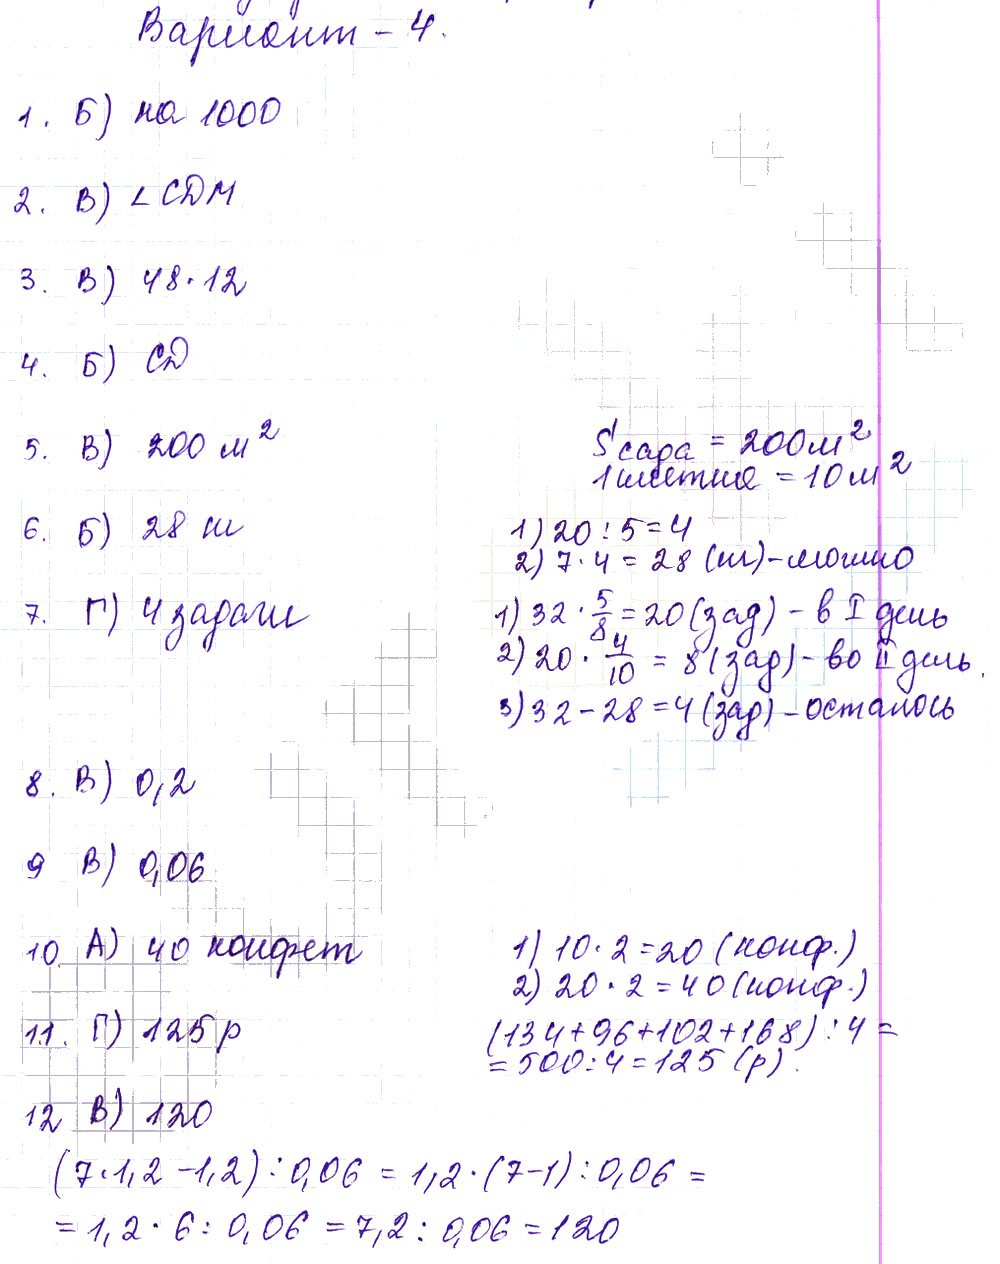 Вариант - 4.
1. Б) на 1000
2. В) ∠ CDM
3. В) 48·12
4. Б) CD
5. В) 200 м²
S сада = 200м²
1 = 10 м²
6. Б) 28 ш
1) 20 : 5 = 4
2) 7 · 4 = 28 (ш) - можно
7. Г) 4 задачи
1) 32 · 5/8 = 20 (зад) - в I день
2) 20 · 4/10 = 8 (зад) - во II день.
3) 32 - 28 = 4 (зад) - осталось
8. В) 0,2
9 В) 0,06
10. А) 40 конфет
1) 10 · 2 = 20 (конф.)
2) 20 · 2 = 40 (конф.)
11. Г) 125 р
(134 + 96 + 102 + 168) : 4 =
= 500 : 4 = 125 (р).
12 В) 120
(7·1,2 - 1,2) : 0,06 = 1,2 · (7-1) : 0,06 =
= 1,2 · 6 : 0,06 = 7,2 : 0,06 = 120